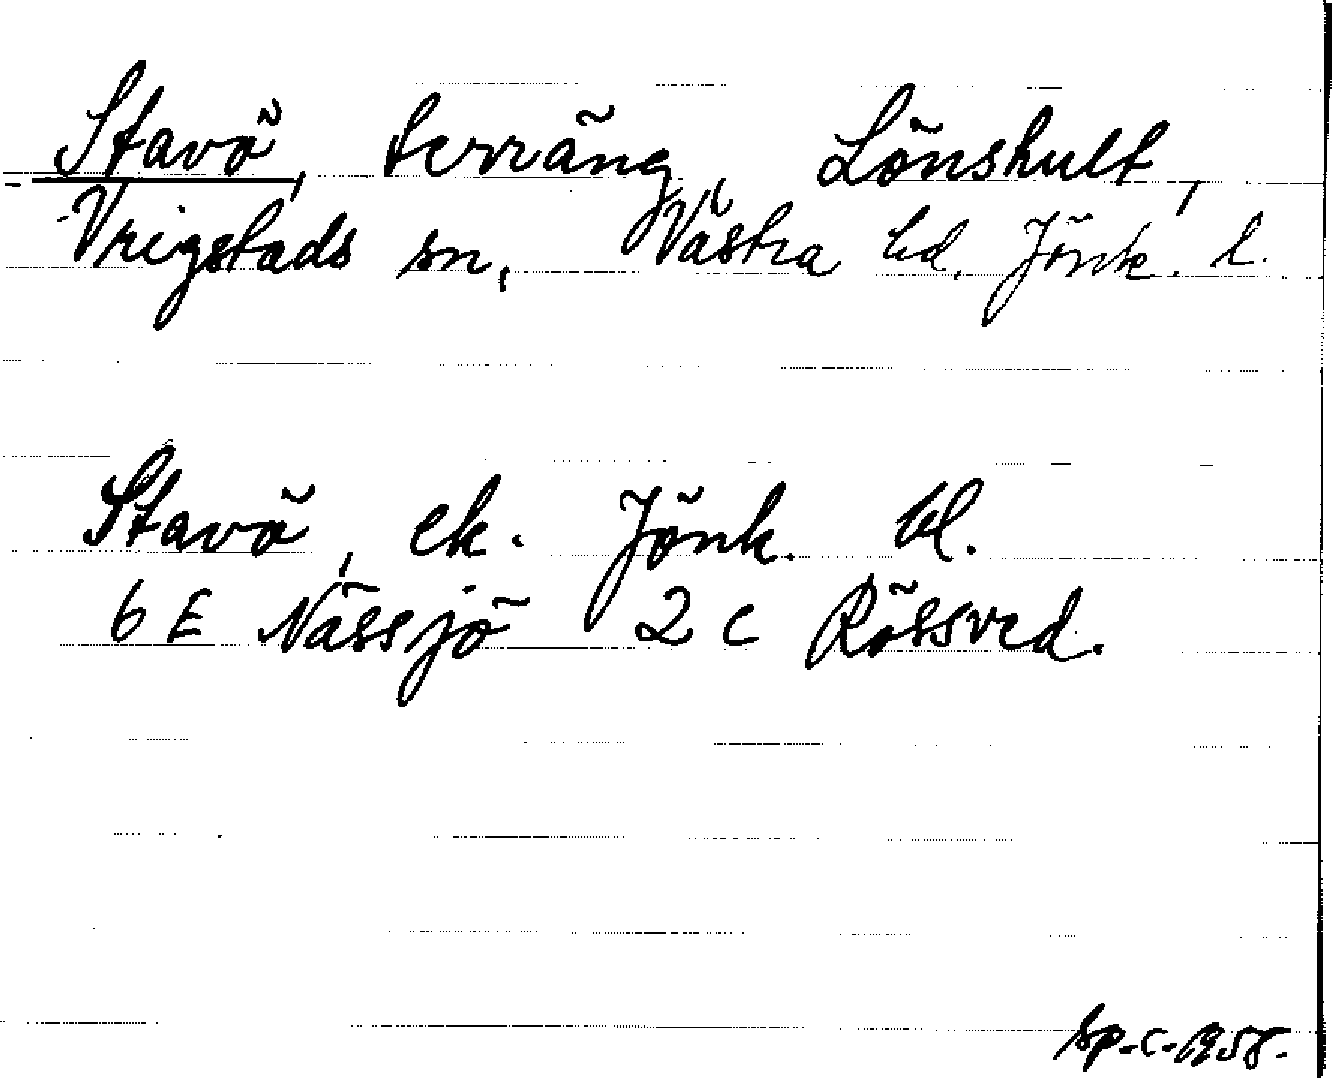 Stavö, terräng, Lönshult,
Vrigstads sn, Västra hd. Jönk. l.
Stavö, ek. Jönk. bl.
6 E Nässjö 2 c Rössved.